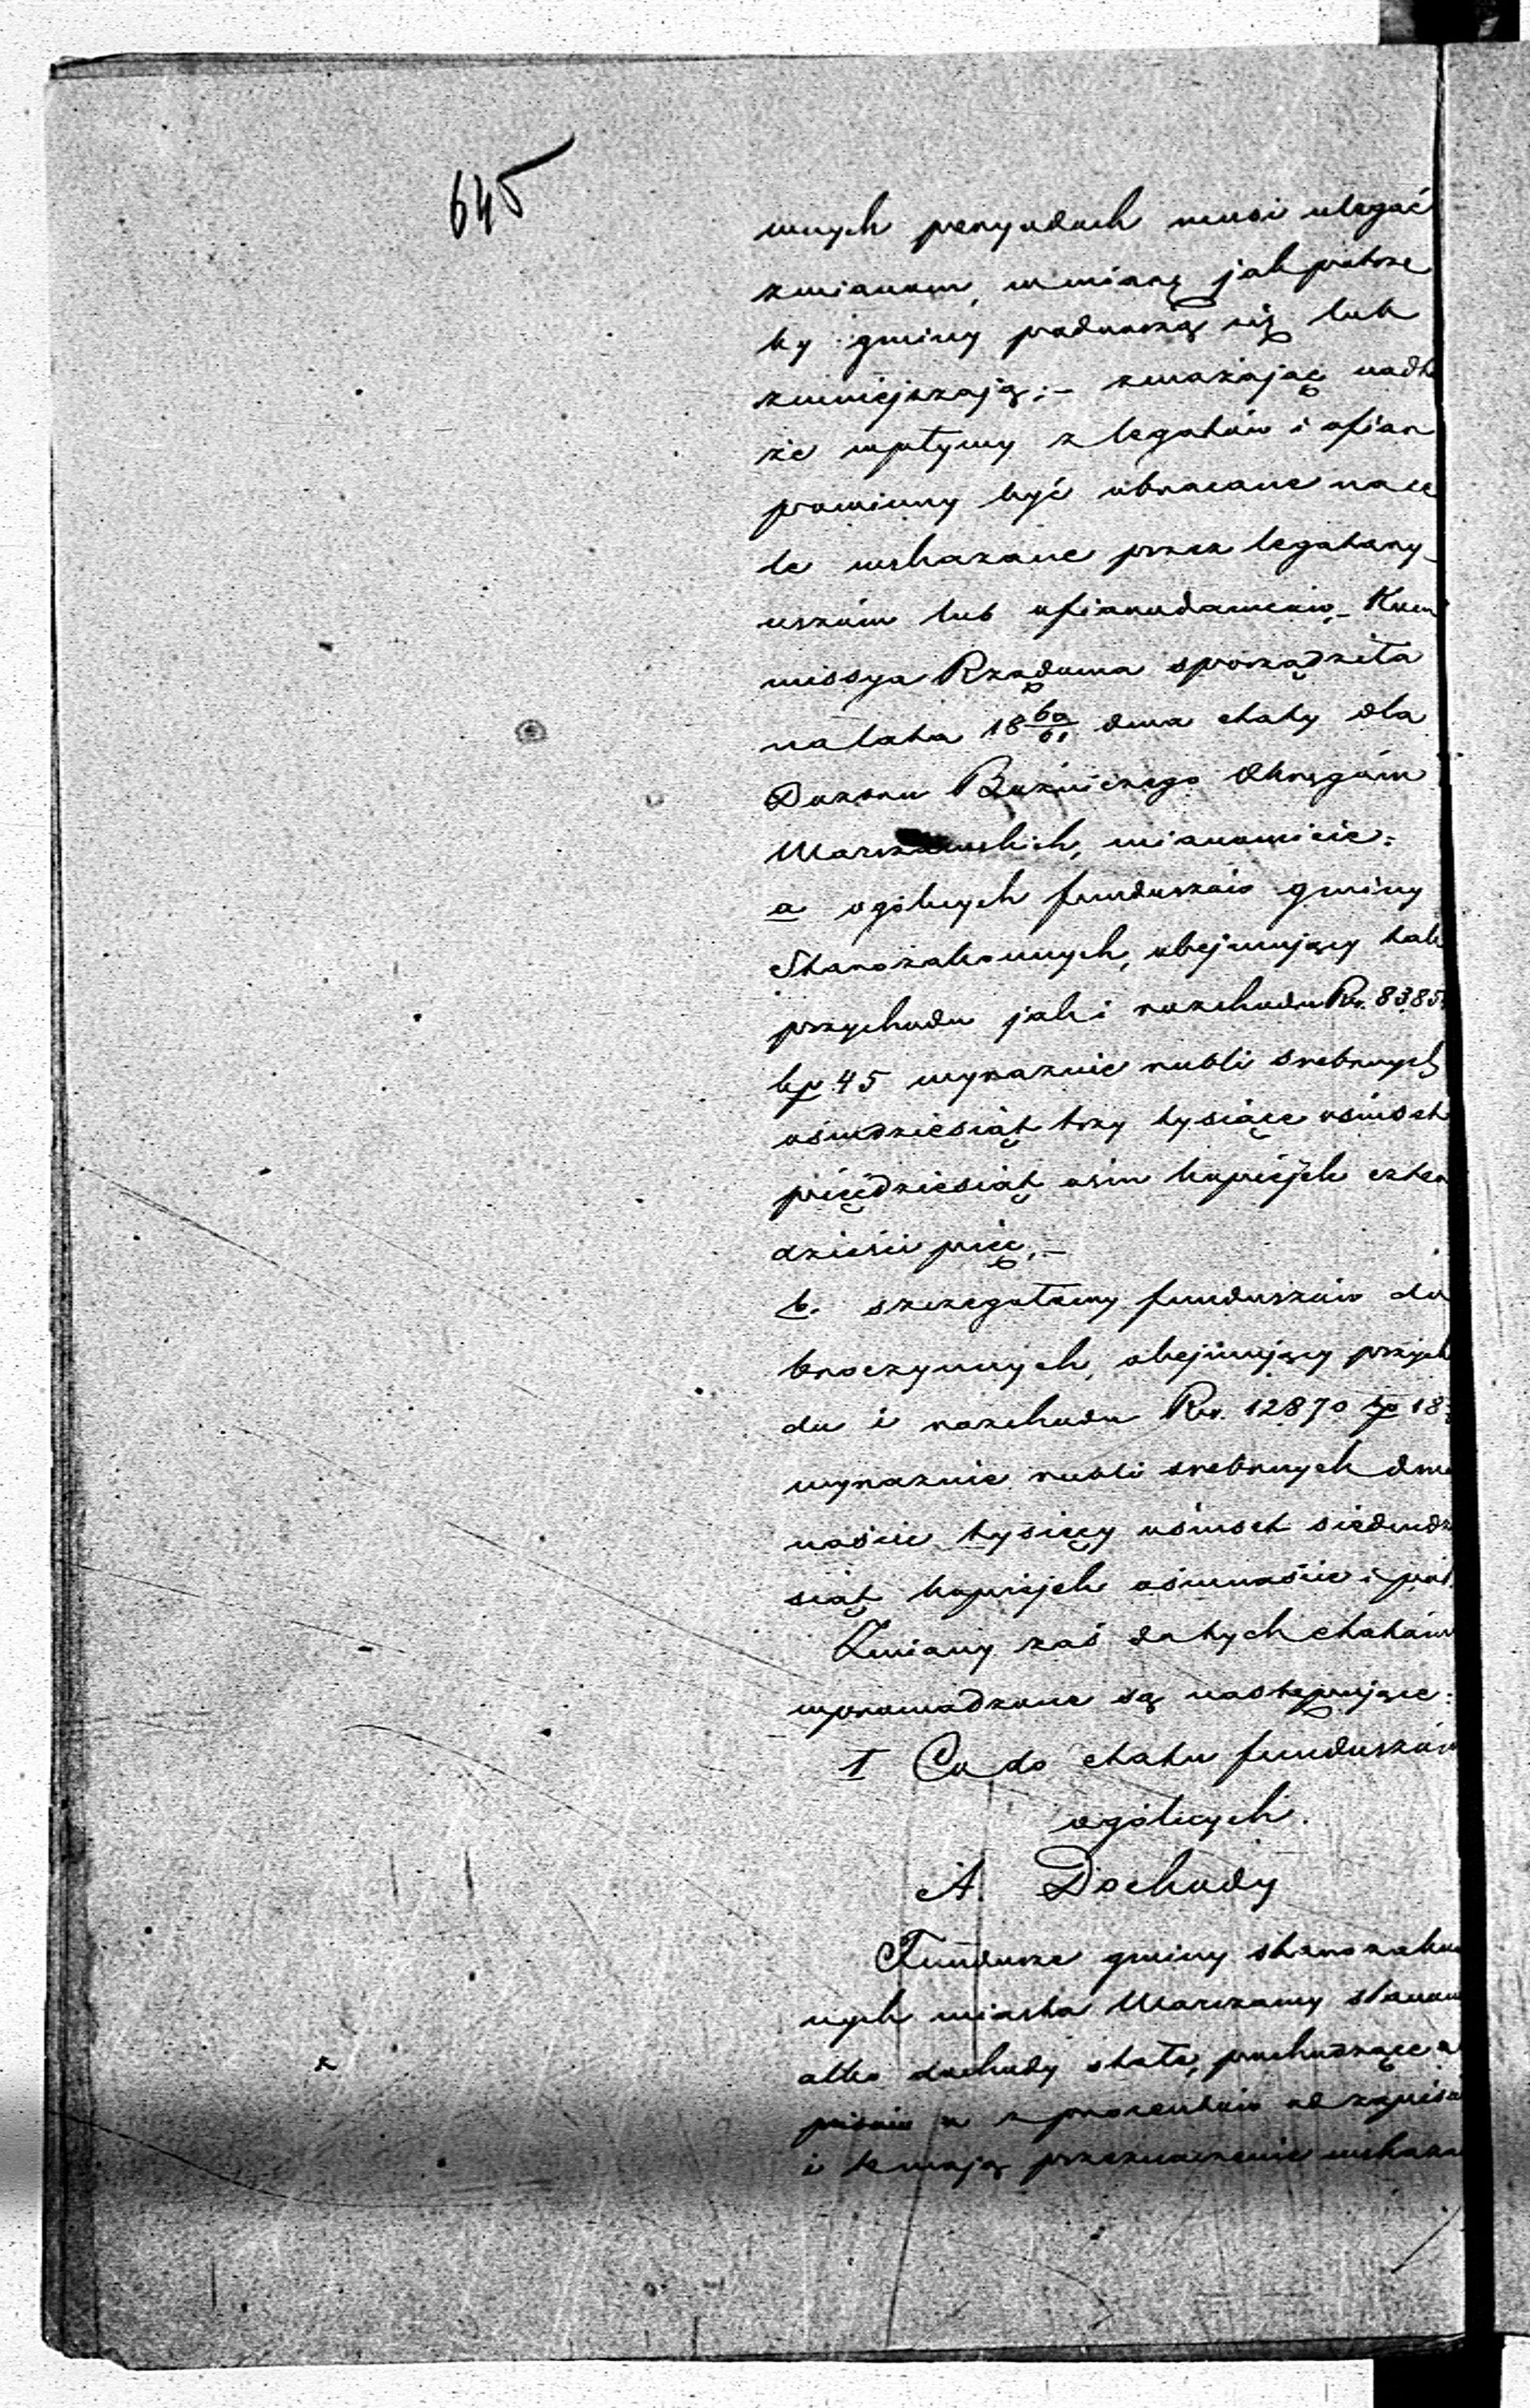 645
wnych peryodach musi ulegać
zmianom, w miarę jak potrze
by gminy podnoszą się lub
zmniejszają; – zważając nadto
że wpływy z legatów i ofiar
powinny być obracane na ce
le wskazane przez legatary_
uszów lub ofiarodawców, – Kom
missya Rządowa sporządziła
na lata 18 60/61 dwa etaty dla
Dozoru Bóżniczego Okręgów
Warszawskich, mianowicie:
a ogólnych funduszów gminy
Starozakonnych, obejmujący tak
przychodu jak i rozchodu Rs. 8385
kp 45 wyraźnie rubli srebrnych
ośmdziesiąt trzy tysiące ośmset
pięćdziesiąt ośm kopiejek czter
dzieści pięć, –
b. szczegółowy funduszów do
broczynnych, obejmujący przych
du i rozchodu Rs. 12870 kp 18
wyraźnie rubli srebrnych dwa
naście tysięcy ośmset siedmdz
siąt kopiejek ośmnaście i pół.
Zmiany zaś do tych etatów
wprowadzone są następujące:
I Co do etatu funduszów
ogólnych.
A. Dochody
Fundusze gminy starozakon
nych miasta Warszawy stanow
albo dochody stałe, pochodzące z
procentów od zapisów
i te mają przeznaczenie wskaza